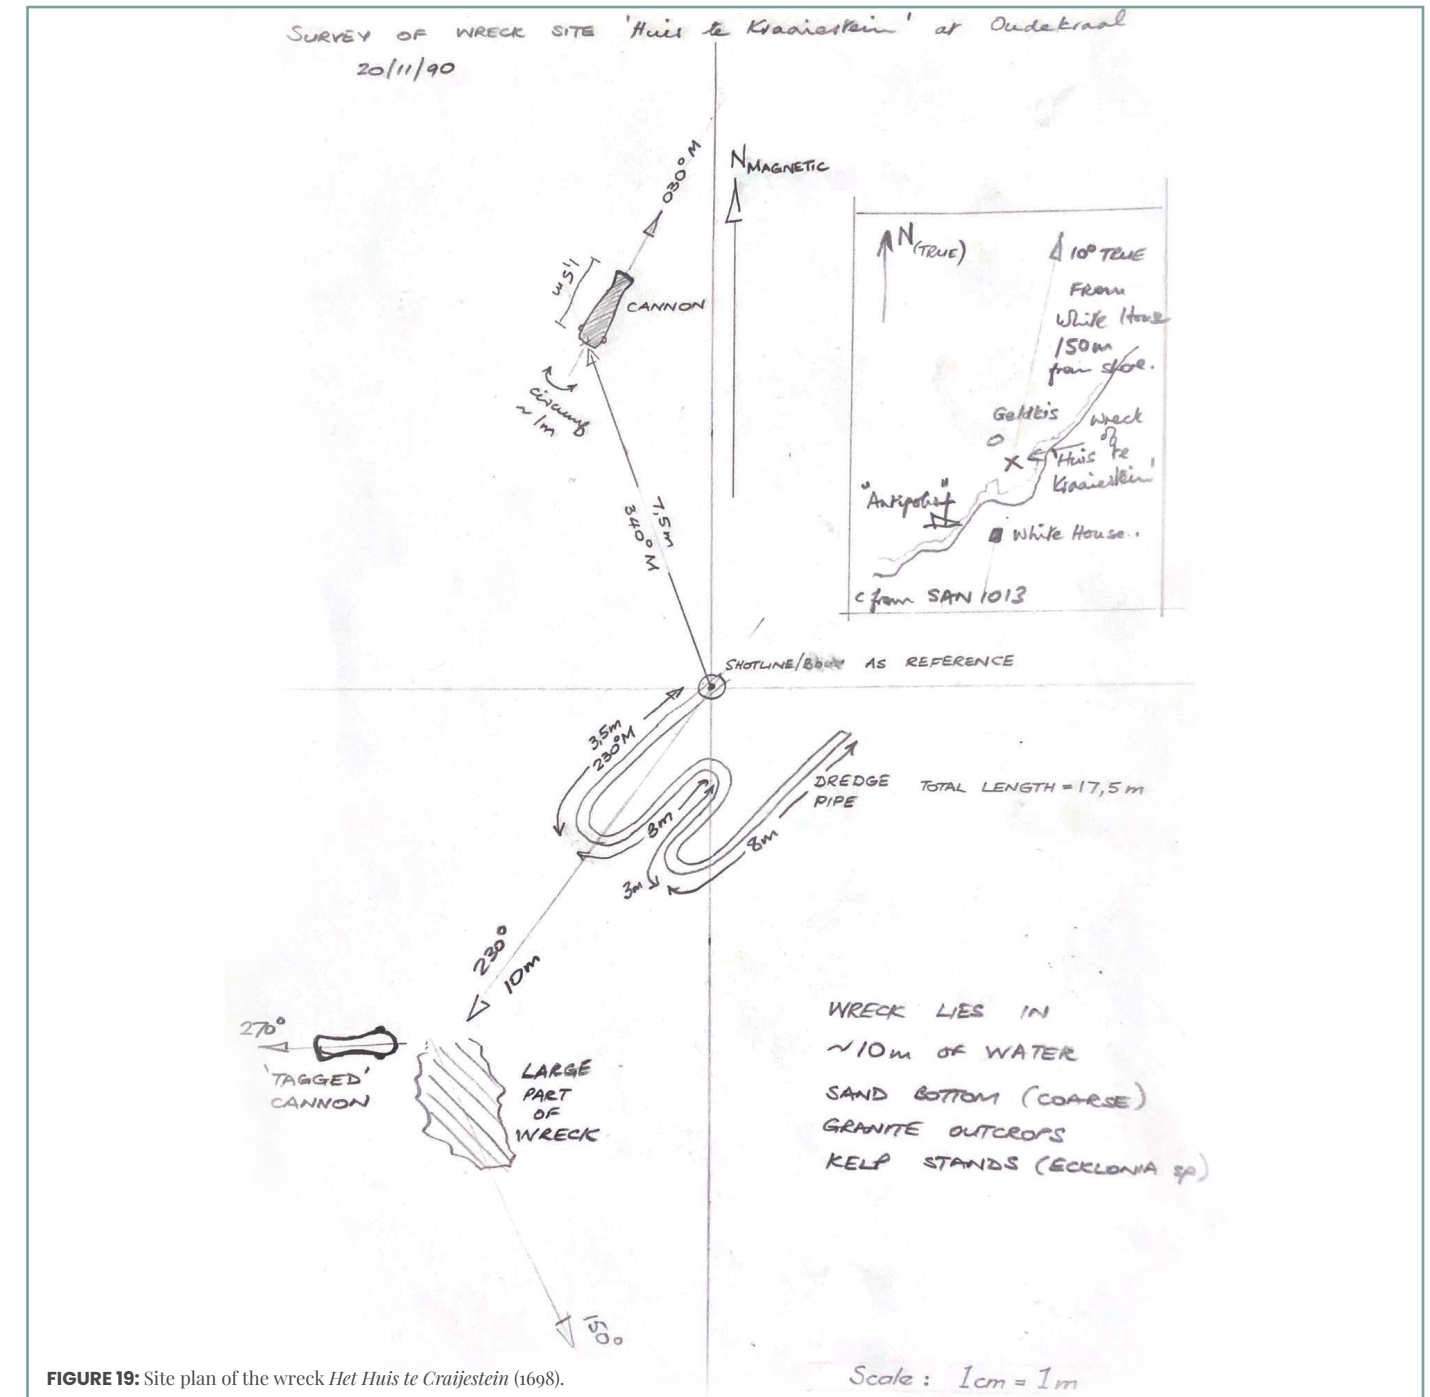 SURVEY OF WRECK SITE 'Huis te Kraaiestein' at Oudekraal
20/11/90
030°M
N MAGNETIC
1,5m
CANNON
circumf
~ 1m
7,5m
340°M
N (TRUE)
10° TRUE
FROM
White House
150m
from shore.
Geldkis
Wreck
of
'Huis te
Kraaiestein'
"Antipolis"
White House..
from SAN 1013
SHOTLINE/ AS REFERENCE
3,5m
230°M
3m
3m
8m
DREDGE
PIPE
TOTAL LENGTH = 17,5m
230°
10m
270°
'TAGGED'
CANNON
LARGE
PART
OF
WRECK
150°
WRECK LIES IN
~10m OF WATER
SAND BOTTOM (COARSE)
GRANITE OUTCROPS
KELP STANDS (ECKLONIA sp)
Scale: 1cm = 1m
FIGURE 19: Site plan of the wreck Het Huis te Craijestein (1698).